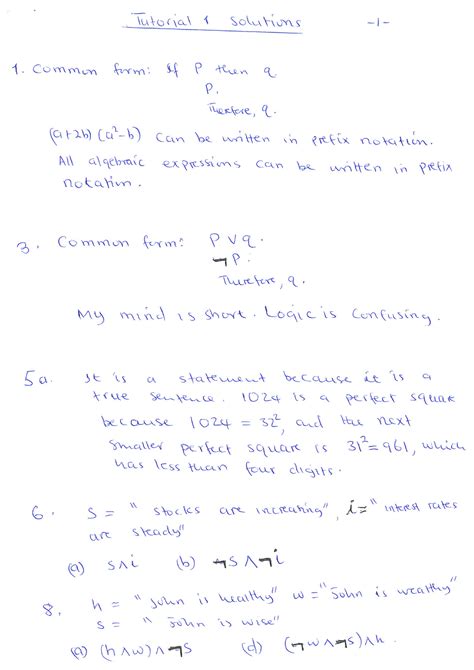 Tutorial 1 Solutions -1-
1. Common form: If P then q
P.
Therefore, q.
(a+2b)(a²-b) can be written in prefix notation.
All algebraic expressions can be written in prefix
notation.
3. Common form: P∨q.
¬P.
Therefore, q.
My mind is short. Logic is confusing.
5a. It is a statement because it is a
true sentence. 1024 is a perfect square
because 1024 = 32², and the next
smaller perfect square is 31²=961, which
has less than four digits.
6. S = "stocks are increasing", i="interest rates
are steady"
(a) S∧i (b) ¬S∧¬i
8. h = "John is healthy" w = "John is wealthy"
S = "John is wise"
(a) (h∧w)∧¬S (d) (¬w∧¬S)∧h.